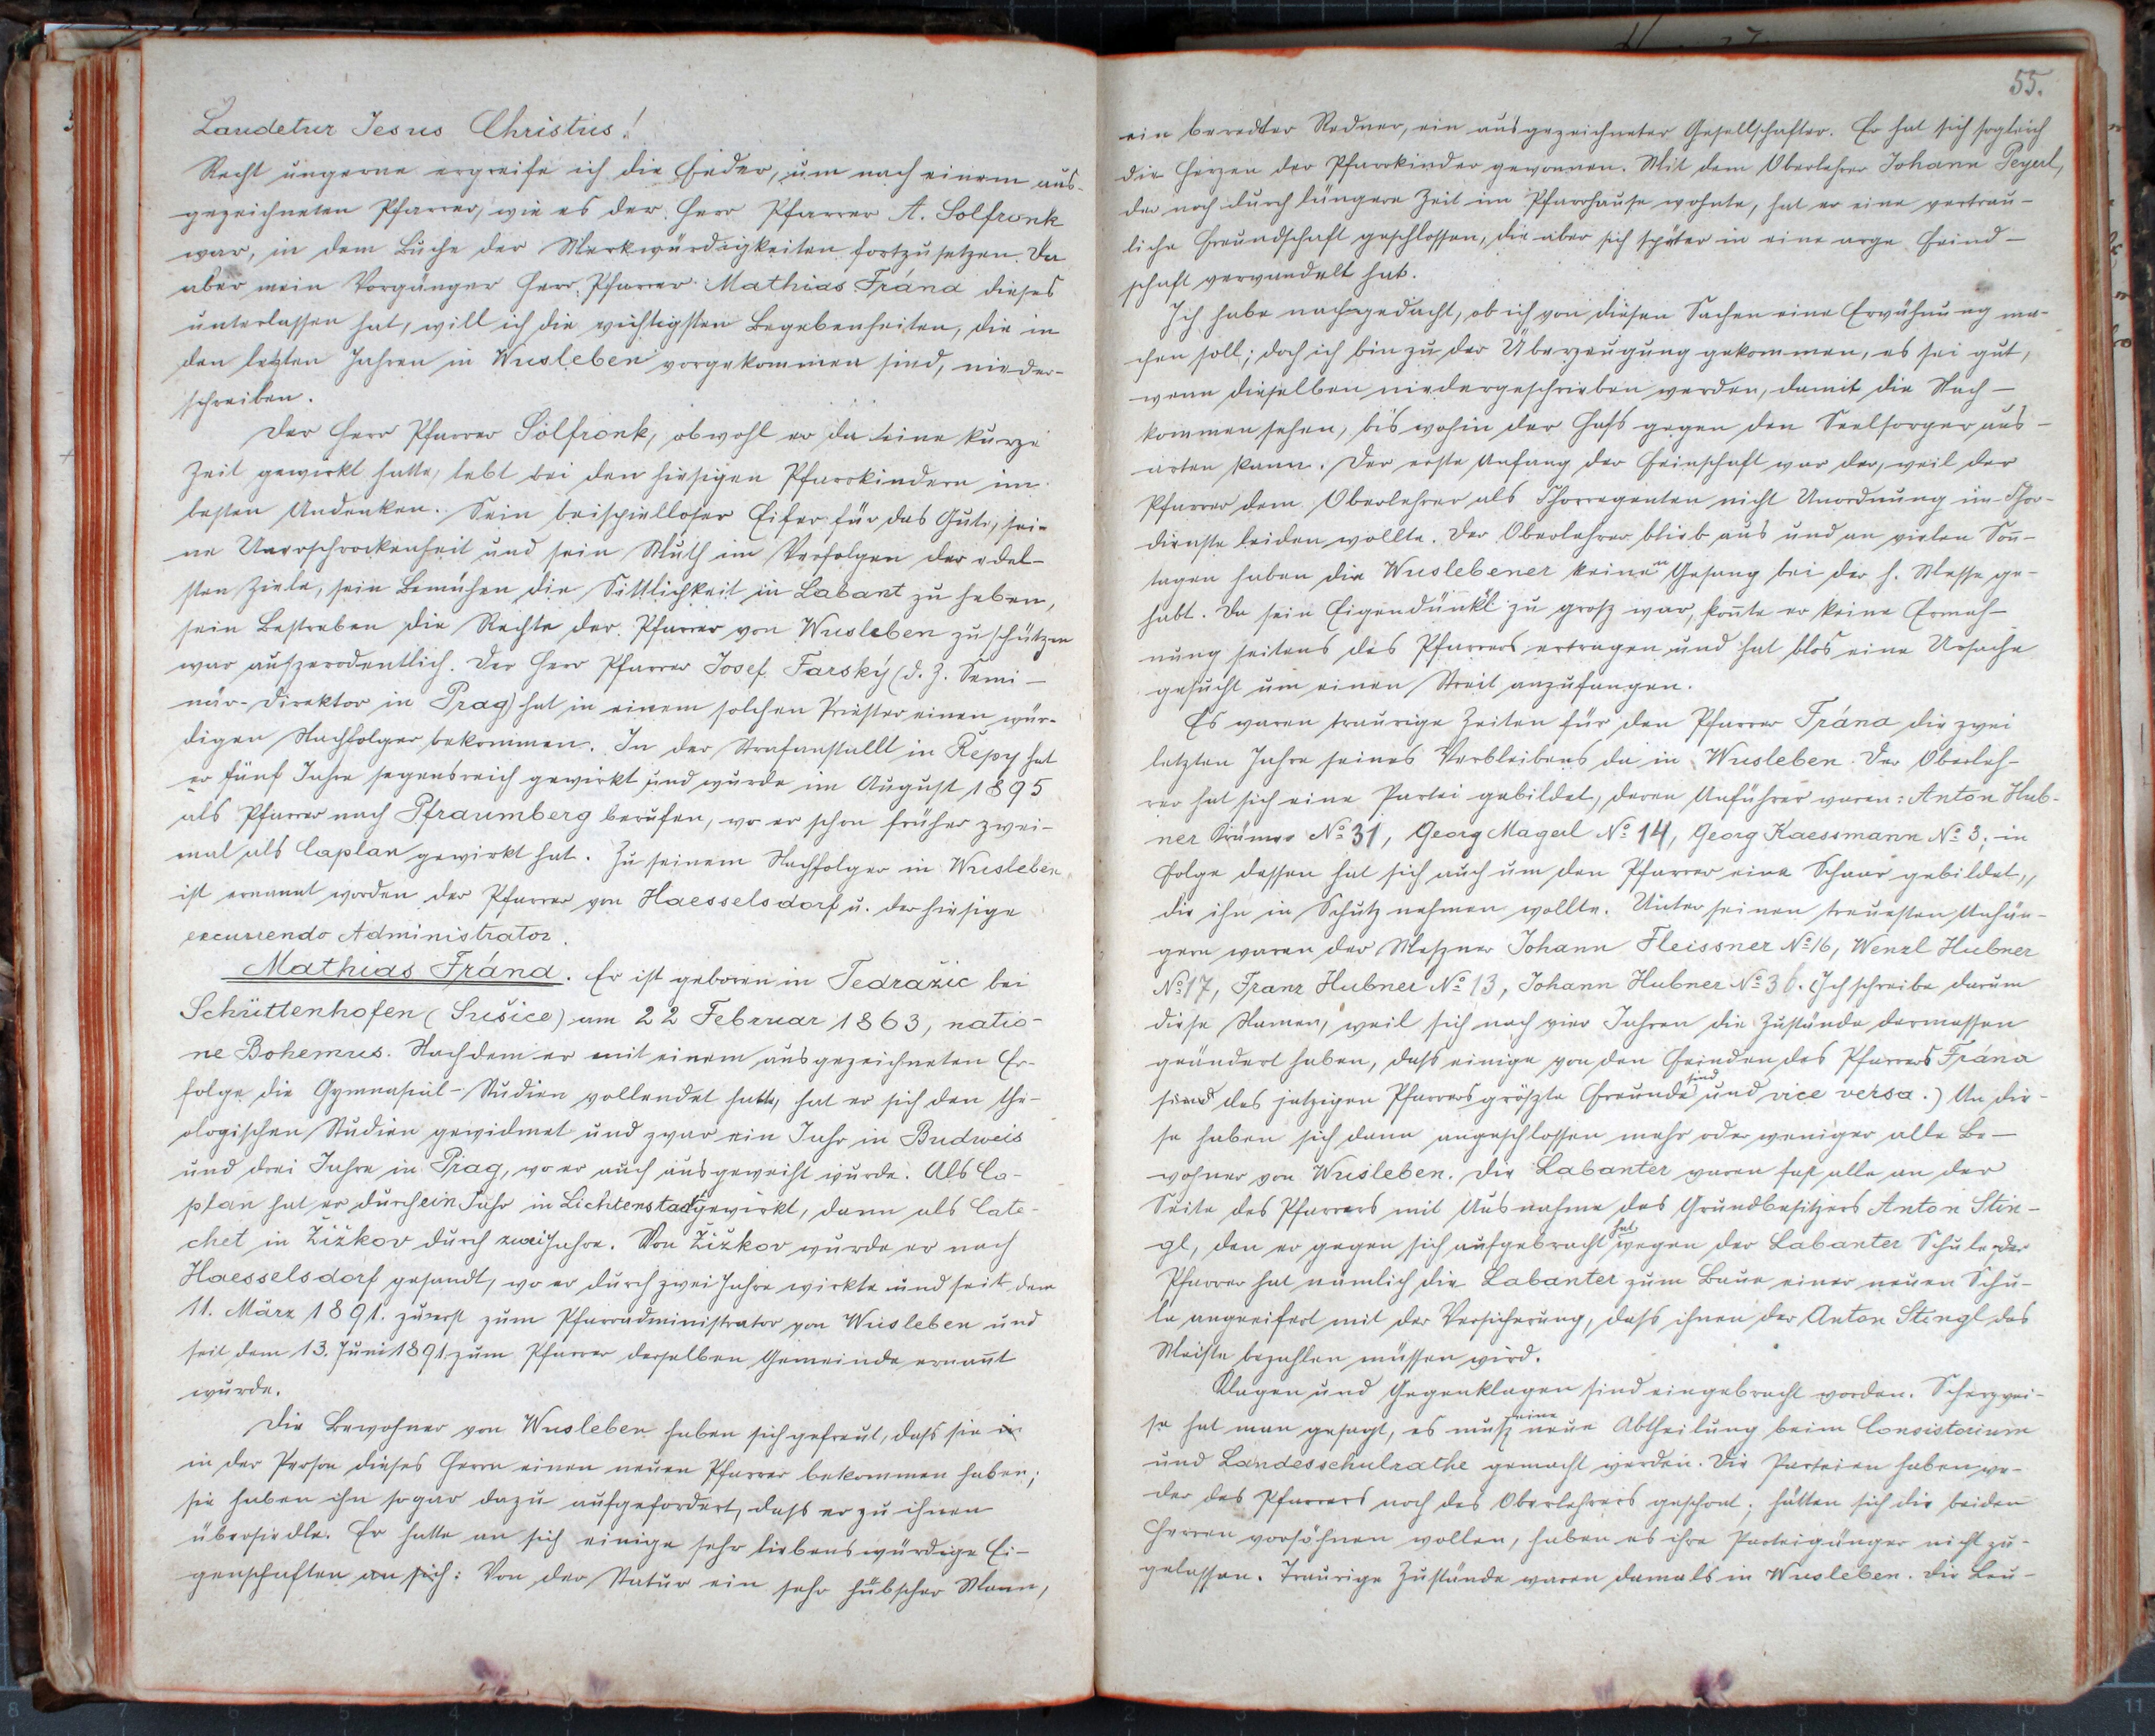 Laudetur Jesus Christus!
Recht ungerne ergreife ich die Feder, um nach einem aus-
gezeichneten Pfarrer, wie es der Herr Pfarrer A. Solfronk
war, in dem Buche der Merkwürdigkeiten fortzusetzen. Da
aber mein Vorgänger Herr Pfarrer Mathias Frána dieses
unterlassen hat, will ich die wichtigsten Begebenheiten, die in
den letzten Jahren in Wusleben vorgekommen sind, nieder-
schreiben.
Der Herr Pfarrer Solfronk, obwohl er da eine kurze
Zeit gewirkt hatte, lebt bei den hiesigen Pfarrkindern im
besten Andenken. Sein beispielloser Eifer für das Gute, sei-
ne Unerschrockenheit und sein Muth im Verfolgen der edel-
sten Ziele, sein Bemühen die Sittlichkeit in Labant zu heben,
sein Bestreben die Rechte der Pfarrer von Wusleben zu schützen
war auszerodentlich. Der Herr Pfarrer Josef Farský (d. Z. Semi-
när-Direktor in Prag) hat in einem solchen Priester einen wür-
digen Nachfolger bekommen. In der Strafanstallt in Řepy hat
er fünf Jahre segensreich gewirkt und wurde im August 1895
als Pfarrer nach Pfraumberg berufen, wo er schon früher zwei-
mal als Caplan gewirkt hat. Zu seinem Nachfolger in Wusleben,
ist ernannt worden der Pfarrer von Haesselsdorf u. der hiesige
excurrendo Administrator.
Mathias Frána. Er ist geboren in Tedražic bei
Schüttenhofen (Sušice) am 22 Februar 1863, natio-
ne Bohemus. Nachdem er mit einem ausgezeichneten Er-
folge die Gymnasial-Studien vollendet hatte, hat er sich den the-
ologischen Studien gewidmet und zwar ein Jahr in Budweis
und drei Jahre in Prag, wo er auch ausgeweiht wurde. Als Ca-
plan hat er durch ein Jahr in Lichtenstadt gewirkt, dann als Cate-
chet in Žižkov durch zwei Jahre. Von Žižkov wurde er nach
Haesselsdorf gesandt, wo er durch zwei Jahre wirkte und seit dem
11. März 1891. zuerst zum Pfarradministrator von Wusleben und
seit dem 13. Juni 1891 zum Pfarrer derselben Gemeinde ernannt
wurde.
Die Bewohner von Wusleben haben sich gefreut, dass sie in
in der Person dieses Herrn einen neuen Pfarrer bekommen haben;
sie haben ihn sogar dazu aufgefordert, dass er zu ihnen
übersiedle. Er hatte an sich einige sehr liebenswürdige Ei-
genschaften an sich: Von der Statur ein sehr hübscher Mann,
55.
ein beredter Redner, ein ausgezeichneter Gesellschafter. Er hat sich sogleich
die Herzen der Pfarrkinder gewonnen. Mit dem Oberlehrer Johann Peyerl,
der noch durch längere Zeit im Pfarrhause wohnte, hat er eine vertrau-
liche Freundschaft geschlossen, die aber sich später in eine arge Feind-
schaft verwandelt hat.
Ich habe nachgedacht, ob ich von diesen Sachen eine Erwähnung ma-
chen soll; doch ich bin zu der Überzeugung gekommen, es sei gut,
wenn dieselben niedergeschrieben werden, damit die Nach-
kommen sehen, bis wohin der Hass gegen den Seelsorger aus-
arten kann. Der erste Anfang der Feinschaft war der, weil der
Pfarrer dem Oberlehrer als Chorregenten nicht Unordnung im Chor-
dienste leiden wollte. Der Oberlehrer blieb aus und an vielen Son-
tagen haben die Wuslebener keinen Gesang bei der h. Messe ge-
habt. Da sein Eigendünkl zu grosz war, konnte er keine Ermah-
nung seitens des Pfarrers ertragen und hat blos eine Ursache
gesucht um einen Streit anzufangen.
Es waren traurige Zeiten für den Pfarrer Frána die zwei
letzten Jahre seines Verbleibens da in Wusleben. Der Oberleh-
rer hat sich eine Partei gebildet, deren Anführer waren: Anton Hub-
ner Krämer No 31, Georg Magerl No 14, Georg Kaessmann No 3; in
Folge dessen hat sich auch um den Pfarrer eine Schaar gebildet,
die ihn in Schutz nehmen wollte. Unter seinen treuesten Anhän-
gern waren der Meszner Johann Fleissner No 16, Wenzl Hubner
No 17, Franz Hubner No 13, Johann Hubner No 36. (Ich schreibe darum
diese Namen, weil sich nach vier Jahren die Zustände dermassen
geändert haben, dass einige von den Feinden des Pfarrers Frána
sind des jetzigen Pfarrers gröszte Freunde sind und vice versa.) An die-
se haben sich dann angeschlossen mehr oder weniger alle Be-
wohner von Wusleben. Die Labanter waren fast alle an der
Seite des Pfarrers mit Ausnahme des Grundbesitzers Anton Stin-
gl, den er gegen sich aufgebracht hat wegen der Labanter Schule. Der
Pfarrer hat nämlich die Labanter zum Baue einer neuen Schu-
le angeeifert mit der Versicherung, dass ihnen der Anton Stingl das
Meiste bezahlen müssen wird.
Klagen und Gegenklagen sind eingebracht worden. Scherzwei-
se hat man gesagt, es musz eine neue Abtheilung beim Consistorium
und Landesschulrathe gemacht werden. Die Parteien haben we-
der des Pfarrers noch des Oberlehrers geschont; hätten sich die beiden
Herren versöhnen wollen, haben es ihre Parteigänger nicht zu-
gelassen. Traurige Zustände waren damals in Wusleben. Die Leu-